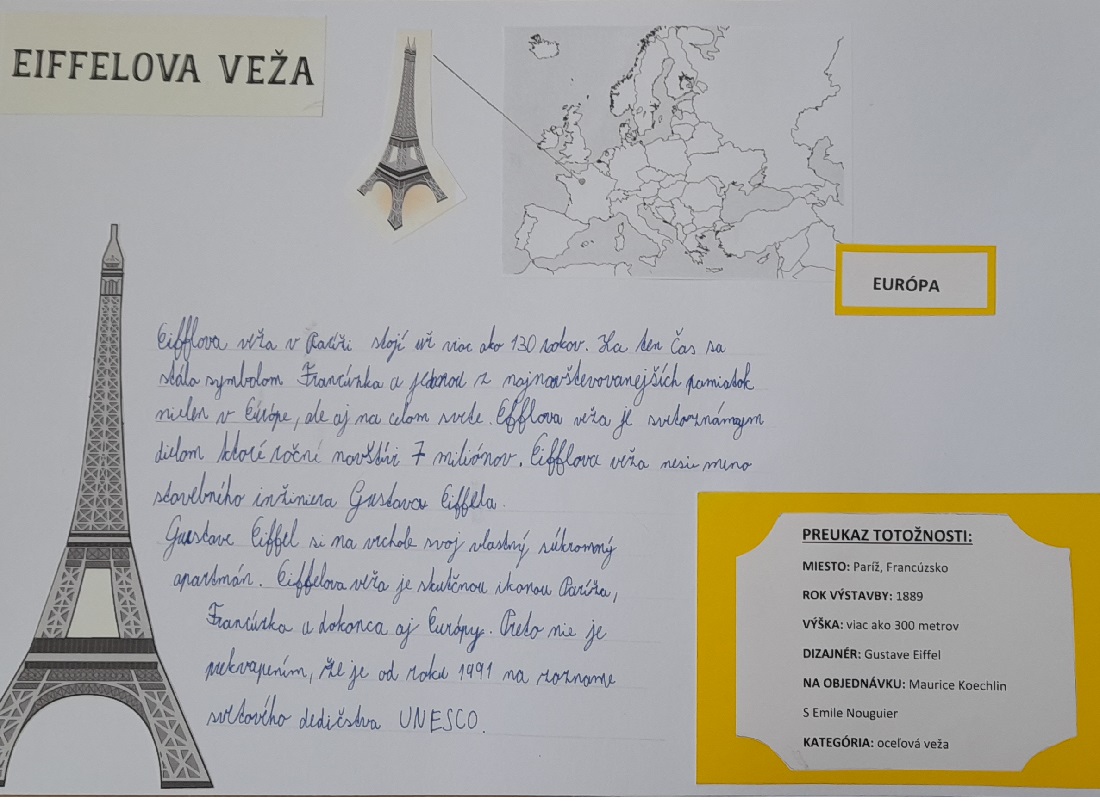 EIFFELOVA VEŽA
EURÓPA
Eifflova veža v Paríži stojí už viac ako 130 rokov. Za ten čas sa
stála symbolom Francúzka a jednou z najnavštevovanejších pamiatok
nielen v Európe, ale aj na celom svete. Efflova veža je svetoznámym
dielom ktoré roční navštívi 7 miliónov. Eifflova veža nesie meno
stavebného inžiniera Gustava Eiffela.
Gustave Eiffel si na vrchole svoj vlastný súkromný
apartmán. Eiffelova veža je skutčnou ikonou Paríža,
Francúzka a dokonca aj Európy. Preto nie je
prekvapením, že je od roku 1991 na zozname
svetového dedičstva UNESCO.
PREUKAZ TOTOŽNOSTI:
MIESTO: Paríž, Francúzsko
ROK VÝSTAVBY: 1889
VÝŠKA: viac ako 300 metrov
DIZAJNÉR: Gustave Eiffel
NA OBJEDNÁVKU: Maurice Koechlin
S Emile Nouguier
KATEGÓRIA: oceľová veža